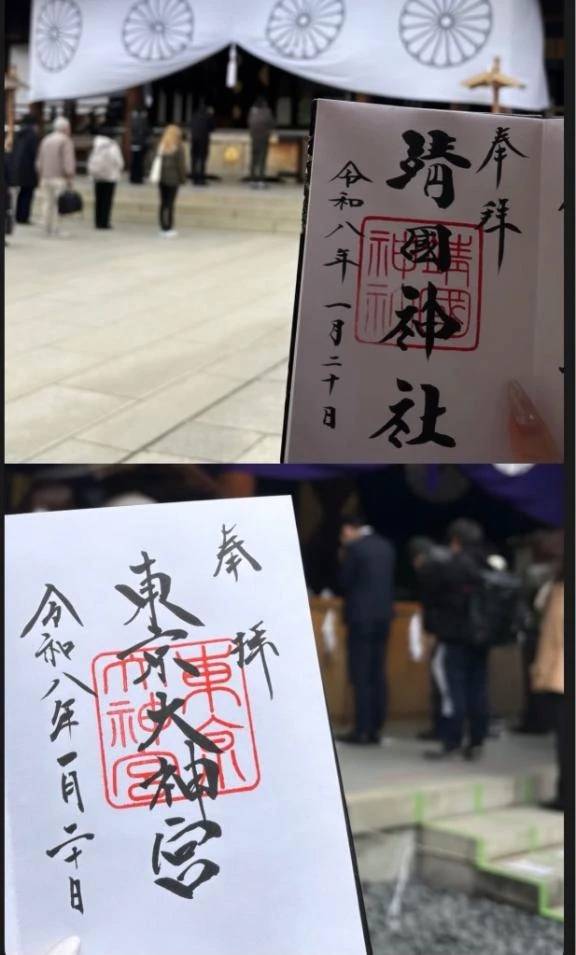 奉拝
靖國神社
靖國
神社
令和八年 一月二十日
奉拝
東京大神宮
東京
大神宮
令和八年一月二十日